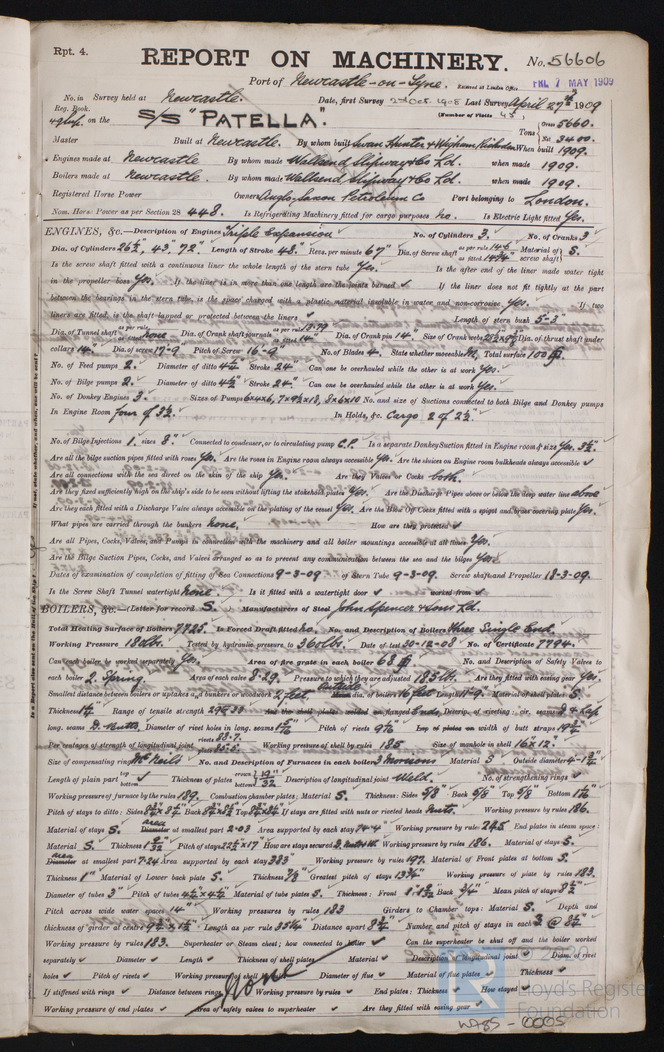 Rpt. 4.
REPORT ON MACHINERY. No. 56606
Port of Newcastle-on-Tyne. Received at London Office FRI. 7 MAY 1909
No. in Survey held at Newcastle. Date, first Survey 2nd Oct 1908 Last Survey April 27th 1909
Reg. Book. (Number of Visits 43)
on the S/S "PATELLA. Tons Gross 5660.
Net 3400.
Master Built at Newcastle. By whom built Swan Hunter & Wigham Richardson When built 1909.
Engines made at Newcastle By whom made Wallsend Slipway & Co Ld. when made 1909.
Boilers made at Newcastle. By whom made Wallsend Slipway & Co Ld. when made 1909.
Registered Horse Power Owners Anglo Saxon Petroleum Co Port belonging to London.
Nom. Horse Power as per Section 28 448. Is Refrigerating Machinery fitted for cargo purposes no. Is Electric Light fitted Yes.
ENGINES, &c.—Description of Engines Triple Expansion No. of Cylinders 3. No. of Cranks 3
Dia. of Cylinders 26½" 43" 72" Length of Stroke 48" Revs. per minute 67" Dia. of Screw shaft as per rule 14.6 as fitted 14¾" Material of screw shaft S.
Is the screw shaft fitted with a continuous liner the whole length of the stern tube Yes. Is the after end of the liner made water tight
in the propeller boss Yes. If the liner is in more than one length are the joints burned ✓ If the liner does not fit tightly at the part
between the bearings in the stern tube, is the space charged with a plastic material insoluble in water and non-corrosive Yes. If two
liners are fitted, is the shaft lapped or protected between the liners ✓ Length of stern bush 5-3"
Dia. of Tunnel shaft as per rule as fitted none Dia. of Crank shaft journals as per rule 13.79 as fitted 14" Dia. of Crank pin 14" Size of Crank webs Dia. of thrust shaft under
collars 14" Dia. of screw 17-9 Pitch of Screw 16-9 No. of Blades 4. State whether moveable M. Total surface 100
No. of Feed pumps 2. Diameter of ditto 4½ Stroke 24" Can one be overhauled while the other is at work Yes.
No. of Bilge pumps 2. Diameter of ditto 4½ Stroke 24" Can one be overhauled while the other is at work Yes.
No. of Donkey Engines 3. Sizes of Pumps 6x4x6, 7x9½x18, 8x6x10 No. and size of Suctions connected to both Bilge and Donkey pumps
In Engine Room four of 3½. In Holds, &c. Cargo 2 of 2½"
No. of Bilge Injections 1. sizes 8" Connected to condenser, or to circulating pump C.P. Is a separate Donkey Suction fitted in Engine room & size Yes. 3½"
Are all the bilge suction pipes fitted with roses Yes. Are the roses in Engine room always accessible Yes. Are the sluices on Engine room bulkheads always accessible ✓
Are all connections with the sea direct on the skin of the ship Yes. Are they Valves or Cocks both.
Are they fixed sufficiently high on the ship's side to be seen without lifting the stokehold plates Yes. Are the Discharge Pipes above or below the deep water line above
Are they each fitted with a Discharge Valve always accessible on the plating of the vessel Yes. Are the Blow Off Cocks fitted with a spigot and brass covering plate Yes.
What pipes are carried through the bunkers none. How are they protected ✓
Are all Pipes, Cocks, Valves, and Pumps in connection with the machinery and all boiler mountings accessible at all times Yes.
Are the Bilge Suction Pipes, Cocks, and Valves arranged so as to prevent any communication between the sea and the bilges Yes
Dates of examination of completion of fitting of Sea Connections 9-3-09 of Stern Tube 9-3-09. Screw shaft and Propeller 18-3-09.
Is the Screw Shaft Tunnel watertight none. Is it fitted with a watertight door ✓ worked from ✓
BOILERS, &c.—(Letter for record S. Manufacturers of Steel John Spencer & Sons Ld.
Total Heating Surface of Boilers 7725. Is Forced Draft fitted no. No. and Description of Boilers Three Single End.
Working Pressure 180 lbs. Tested by hydraulic pressure to 360 lbs. Date of test 30-12-08 No. of Certificate 7794.
Can each boiler be worked separately Yes. Area of fire grate in each boiler 68 No. and Description of Safety Valves to
each boiler 2. Spring. Area of each valve 8.29. Pressure to which they are adjusted 185 lbs. Are they fitted with easing gear Yes.
Smallest distance between boilers or uptakes and bunkers or woodwork 2 feet. outside dia. of boilers 16 feet Length 11-9. Material of shell plates S.
Thickness Range of tensile strength Are the shell plates welded or flanged Ends. Descrip. of riveting: cir. seams D.R. Lap
long. seams D. Butts. Diameter of rivet holes in long. seams Pitch of rivets Lap of plates or width of butt straps
Per centages of strength of longitudinal joint rivets 88.7. plate 85.5. Working pressure of shell by rules 185 Size of manhole in shell 16x12
Size of compensating ring McNeils No. and Description of Furnaces in each boiler 3 Morisons Material S Outside diameter
Length of plain part top bottom Thickness of plates crown bottom 19"/32 Description of longitudinal joint Weld. No. of strengthening rings ✓
Working pressure of furnace by the rules 189. Combustion chamber plates: Material S. Thickness: Sides 5/8 Back 5/8" Top 5/8" Bottom
Pitch of stays to ditto: Sides Back Top If stays are fitted with nuts or riveted heads Nuts. Working pressure by rules 186.
Material of stays S. area Diameter at smallest part 2.03 Area supported by each stay Working pressure by rules 245 End plates in steam space:
Material S. Thickness Pitch of stays 22½x17" How are stays secured Working pressure by rules 186. Material of stays S.
area Diameter at smallest part 7.24 Area supported by each stay 383" Working pressure by rules 197. Material of Front plates at bottom S.
Thickness 1" Material of Lower back plate S. Thickness 7/8" Greatest pitch of stays 13¾" Working pressure of plate by rules 183.
Diameter of tubes 3" Pitch of tubes Material of tube plates S. Thickness: Front Back ¾" Mean pitch of stays
Pitch across wide water spaces 14" Working pressures by rules 183 Girders to Chamber tops: Material S. Depth and
thickness of girder at centre Length as per rule Distance apart Number and pitch of stays in each 3 @ 8½"
Working pressure by rules 183. Superheater or Steam chest; how connected to boiler ✓ Can the superheater be shut off and the boiler worked
separately ✓ Diameter ✓ Length ✓ Thickness of shell plates ✓ Material ✓ Description of longitudinal joint ✓ Diam. of rivet
holes ✓ Pitch of rivets ✓ Working pressure of shell None Diameter of flue ✓ Material of flue plates ✓ Thickness ✓
If stiffened with rings ✓ Distance between rings Working pressure by rules ✓ End plates: Thickness ✓ How stayed ✓
Working pressure of end plates ✓ Area of safety valves to superheater ✓ Are they fitted with easing gear ✓
Lloyd's Register
Foundation
W985-0005